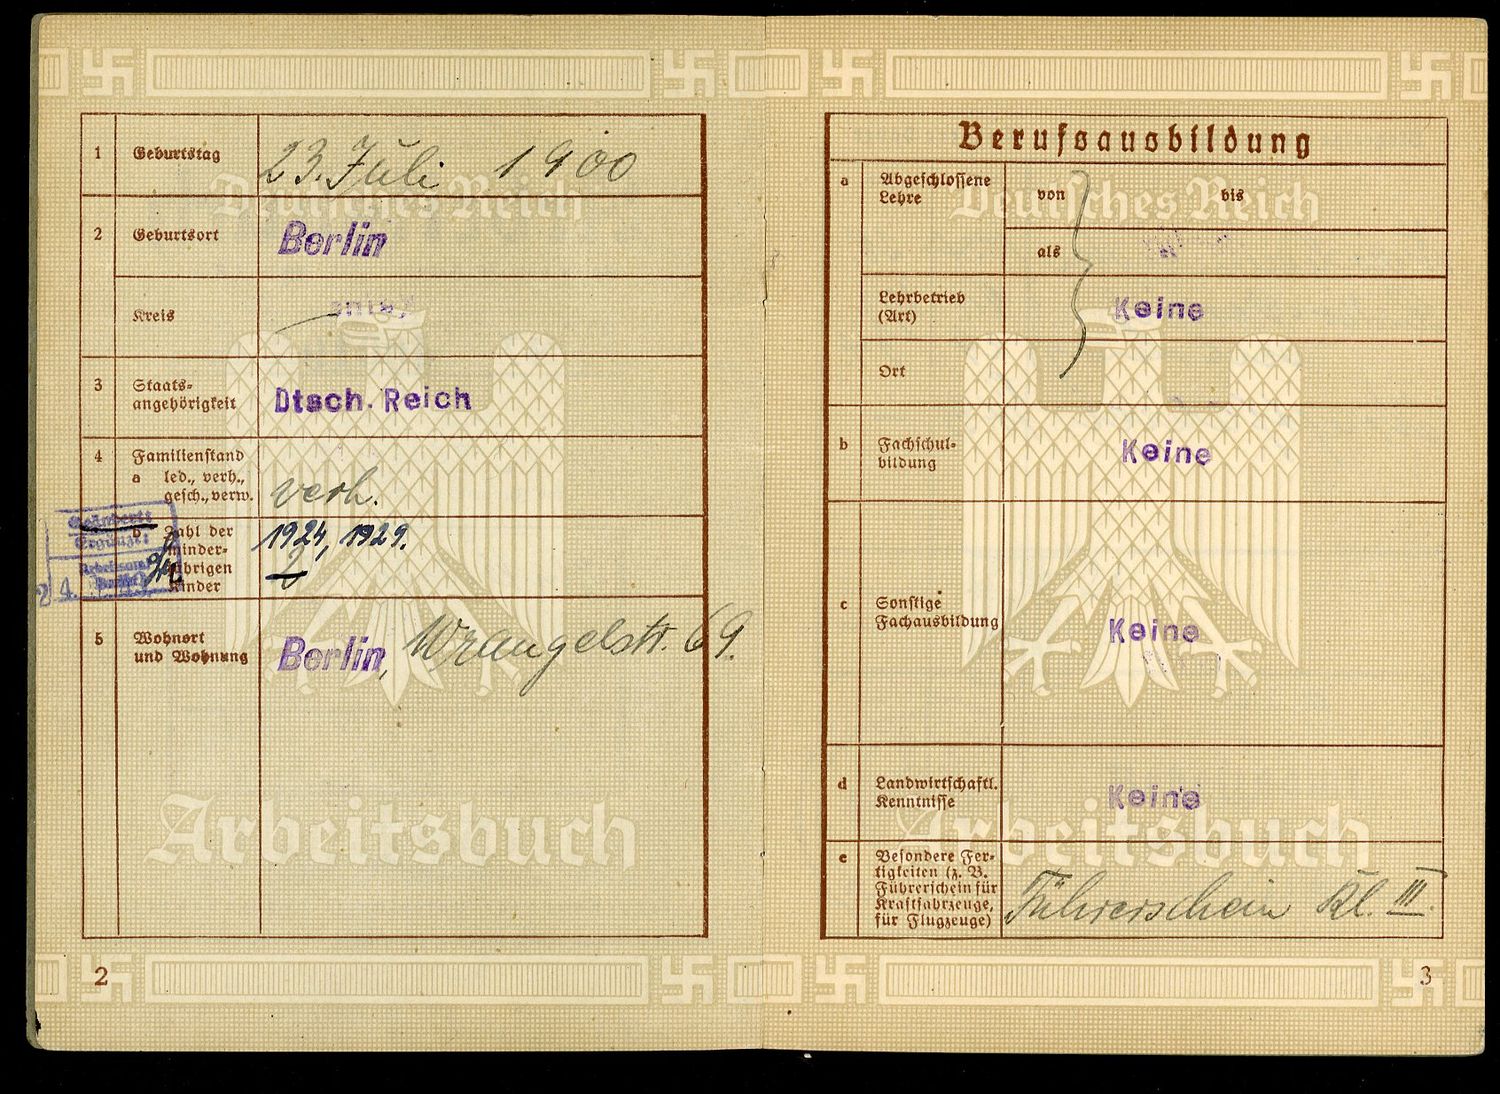 1 Geburtstag 23. Juli 1900
Deutsches Reich
2 Geburtsort Berlin
Kreis
3 Staats-
angehörigkeit Dtsch. Reich
4 Familienstand
a led., verh.,
gesch., verw. verh.
Geändert:
Ergänzt:
b Zahl der
minder-
jährigen
Kinder
1924, 1929.
2
24.
5 Wohnort
und Wohnung Berlin, Wrangelstr. 69.
Arbeitsbuch
2
Berufsausbildung
a Abgeschlossene
Lehre
von bis
Deutsches Reich
als
Lehrbetrieb
(Art)
Keine
Ort
b Fachschul-
bildung
Keine
c Sonstige
Fachausbildung
Keine
d Landwirtschaftl.
Kenntnisse
Keine
Arbeitsbuch
e Besondere Fer-
tigkeiten (z. B.
Führerschein für
Kraftfahrzeuge,
für Flugzeuge)
Führerschein Kl. III.
3